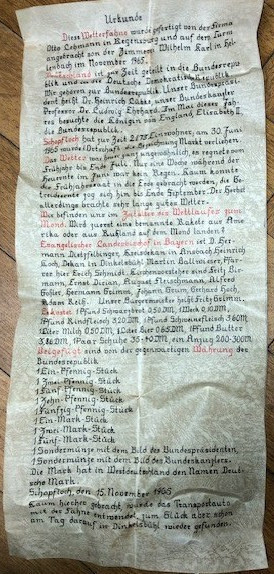 Urkunde
Diese Wetterfahne wurde gefertigt von der Firma
Otto Lehmann in Regensburg und auf dem Turm
angebracht von der Zimmerei Wilhelm Karl in
lenbach im November 1965.
Deutschland ist zur Zeit geteilt in die Bundesrepu-
blik und in die Deutsche Demokratische Republik.
Wir gehören zur Bundesrepublik. Unser Bundespräsi-
dent heißt Dr. Heinrich Lübke, unser Bundeskanzler
Professor Dr. Ludwig Erhard. Im Mai dieses Jah-
res besuchte die Königin von England, Elisabeth II.
die Bundesrepublik.
Schopfloch hat zur Zeit 2175 Einwohner, am 30. Juni
1965 wurde Ortschaft die Bezeichnung Markt verliehen.
Das Wetter war heuer ganz ungewöhnlich, es regnete vom
Frühjahr bis Ende Juli. Nur eine Woche während der
Heuernte im Juni war kein Regen. Kaum konnte
die Frühjahrssaat in die Erde gebracht werden, die Ge-
treideernte zog sich hin bis Ende September. Der Herbst
allerdings brachte sehr lange gutes Wetter.
Wir befinden uns im Zeitalter des Wettlaufes zum
Mond. Wird zuerst eine bemannte Rakete aus Ame-
rika oder aus Rußland auf dem Mond landen?
Evangelischer Landesbischof in Bayern ist D. Her-
mann Dietzfelbinger, Kreisdekan in Ansbach Heinrich
Koch, Dekan in Dinkelsbühl Martin Ballmeier, Pfar-
rer hier Erich Schmidt. Kirchenvorsteher sind
mann, Ernst Dorian, August Fleischmann, Alfred
Hermann Guimm, Johann Grum, Gerhard Hoch
Adam Reiß. Unsere Bürgermeister heißt Fritz
Es kostet: 1 Pfund Schwarzbrot 0,50 DM, 1 Weck 0,10 DM,
1 Pfund Rindfleisch 3,20 DM, 1 Pfund Schweinefleisch 3,60 M,
1 Liter Milch 0,50 DM, 1 Liter Bier 0,65 DM, 1 Pfund Butter
3,80 DM, 1 Paar Schuhe 35-40 DM, ein Anzug 200-300 DM.
Beigefügt sind von der gegenwärtigen Währung der
Bundesrepublik
1 Ein-Pfennig-Stück
1 Zwei-Pfennig-Stück
1 Fünf-Pfennig-Stück
1 Zehn-Pfennig-Stück
1 Fünfzig-Pfennig-Stück
1 Ein-Mark-Stück
1 Zwei-Mark-Stück
1 Fünf-Mark-Stück
1 Sondermünze mit dem Bild des Bundespräsidenten,
1 Sondermünze mit dem Bild des Bundeskanzlers.
Die Mark hat in Westdeutschland den Namen Deut-
sche Mark.
Schopfloch, den 15. November 1965
Kaum hierher gebracht, wurde das Transportauto
mit der Fahne entwendet, zum Glück aber schon
am Tag darauf in Dinkelsbühl wieder gefunden.